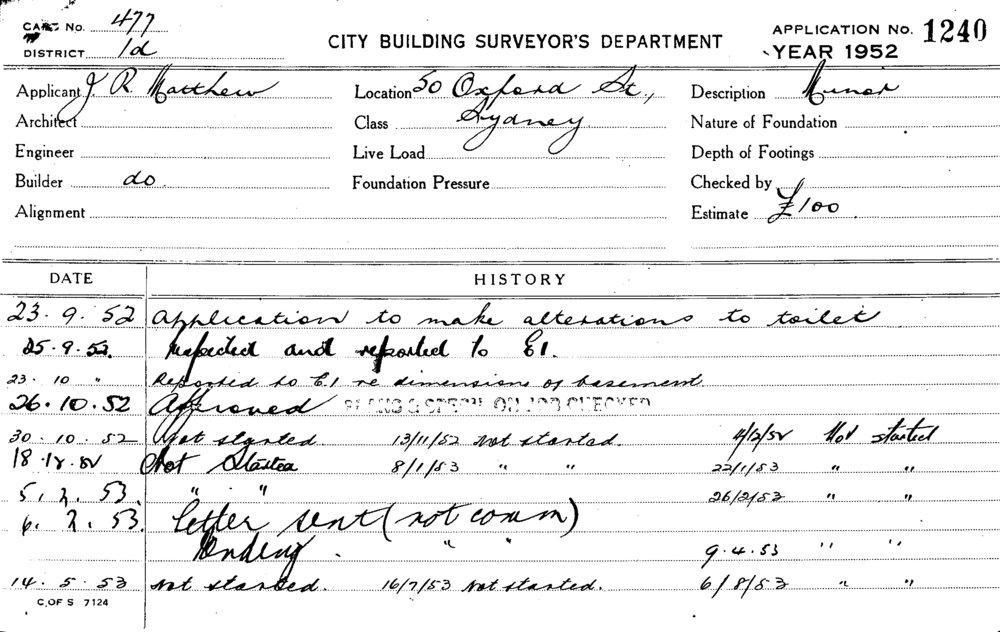 CARD No. 477 CITY BUILDING SURVEYOR'S DEPARTMENT APPLICATION No. 1240
DISTRICT 1d YEAR 1952
Applicant J R Matthew Location 50 Oxford St., Description Minor
Architect Class Sydney Nature of Foundation
Engineer Live Load Depth of Footings
Builder do. Foundation Pressure Checked by
Alignment Estimate £100
DATE HISTORY
23.9.52 Application to make alterations to toilet
25.9.52. Inspected and reported to E1.
23.10 " Reported to E1 re dimensions of basement.
26.10.52 Approved PLANS & SPECN. ON JOB CHECKED
30.10.52 Not started. 13/11/52 Not started. 4/12/52 Not started
18.12.52 Not Started 8/1/53 " " 22/1/53 " "
5.2.53. " " 26/2/53 " "
6.2.53. Letter sent (not comm)
Pending. " " 9.4.53 " "
14.5.53 Not started. 16/7/53 Not started. 6/8/53 " "
C.OF S 7124